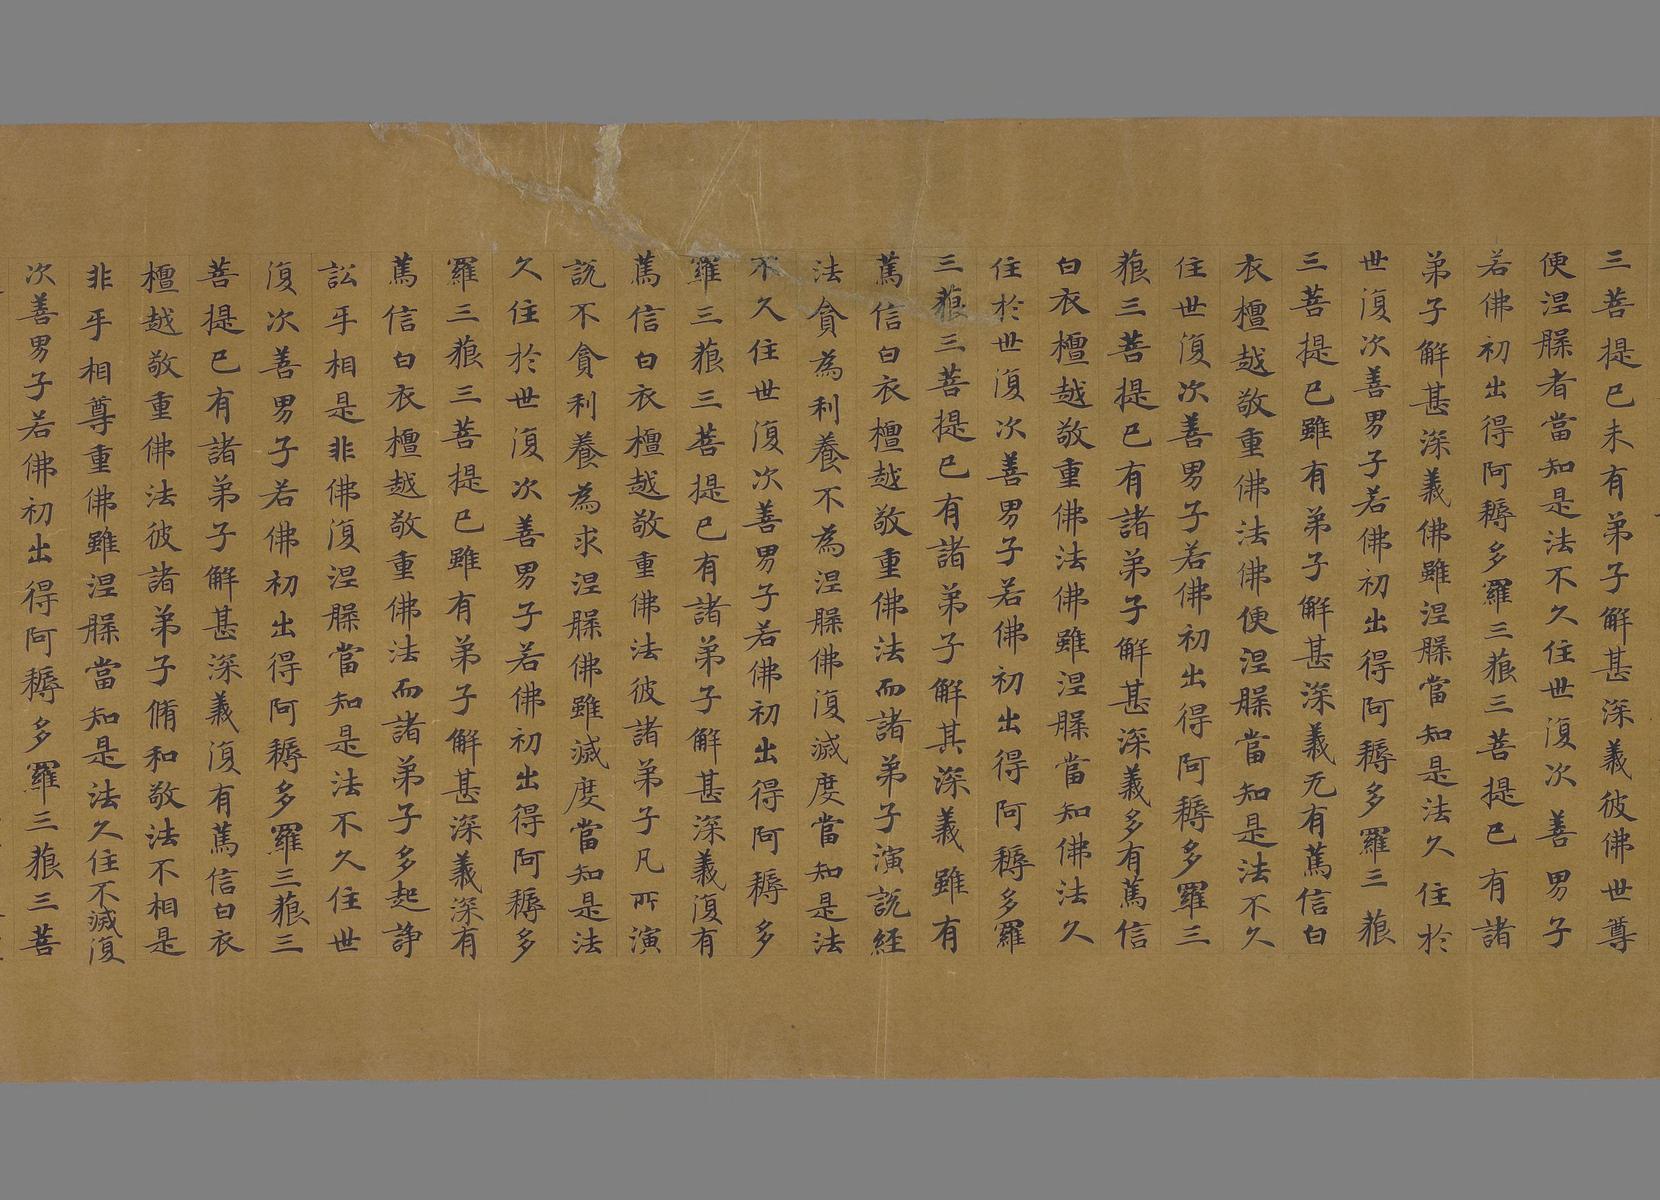 三菩提已未有弟子解甚深義彼佛世尊
便涅槃者當知是法不久住世復次善男子
若佛初出得阿耨多羅三藐三菩提已有諸
弟子解甚深義佛雖涅槃當知是法久住於
世復次善男子若佛初出得阿耨多羅三藐
三菩提已雖有弟子解甚深義无有萬信白
衣檀越敬重佛法佛便涅槃當知是法不久
住世復次善男子若佛初出得阿耨多羅三
藐三菩提已有諸弟子解甚深義多有萬信
白衣檀越敬重佛法佛雖涅槃當知佛法久
住於世復次善男子若佛初出得阿耨多羅
三藐三菩提已有諸弟子解其深義雖有
萬信白衣檀越敬重佛法而諸弟子演說経
法貪為利養不為涅槃佛復滅度當知是法
不久住世復次善男子若佛初出得阿耨多
羅三藐三菩提已有諸弟子解甚深義復有
萬信白衣檀越敬重佛法彼諸弟子凡所演
說不貪利養為求涅槃佛雖滅度當知是法
久住於世復次善男子若佛初出得阿耨多
羅三藐三菩提已雖有弟子解甚深義深有
萬信白衣檀越敬重佛法而諸弟子多起諍
訟乎相是非佛復涅槃當知是法不久住世
復次善男子若佛初出得阿耨多羅三藐三
菩提已有諸弟子解甚深義復有萬信白衣
檀越敬重佛法彼諸弟子脩和敬法不相是
非乎相尊重佛雖涅槃當知是法久住不滅復
次善男子若佛初出得阿耨多羅三藐三菩